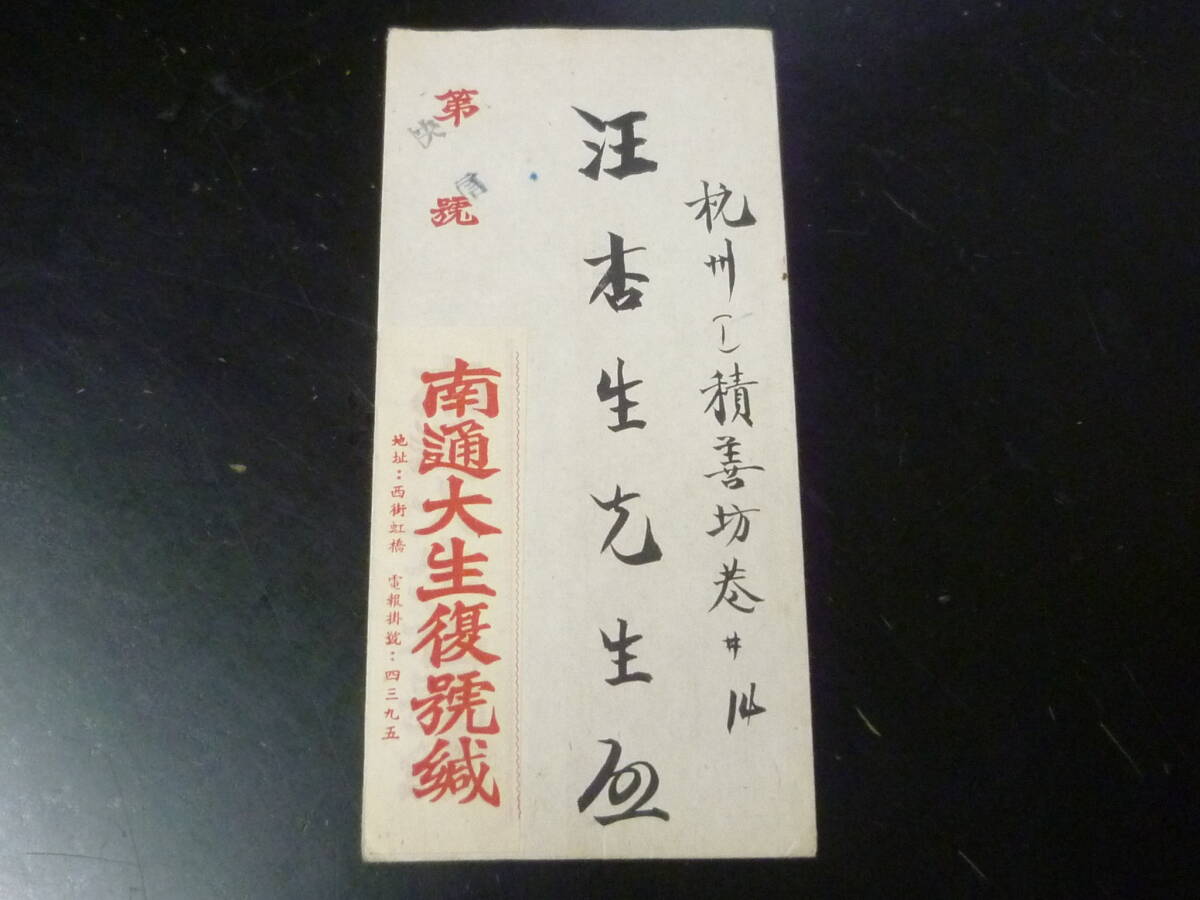 杭州(1)積善坊巷#14
汪杏生先生啟
第 號
快信
南通大生復號緘
地址:西街虹橋 電報掛號:四三九五